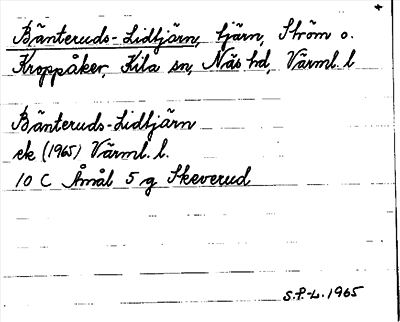 Bänteruds-Lidtjärn, tjärn, Ström o.
Kroppåker, Kila sn, Näs hd, Värml. l
Bänteruds-Lidtjärn
ek (1965) Värml. l.
10 C Åmål 5 g Skeverud
S.P.-L. 1965